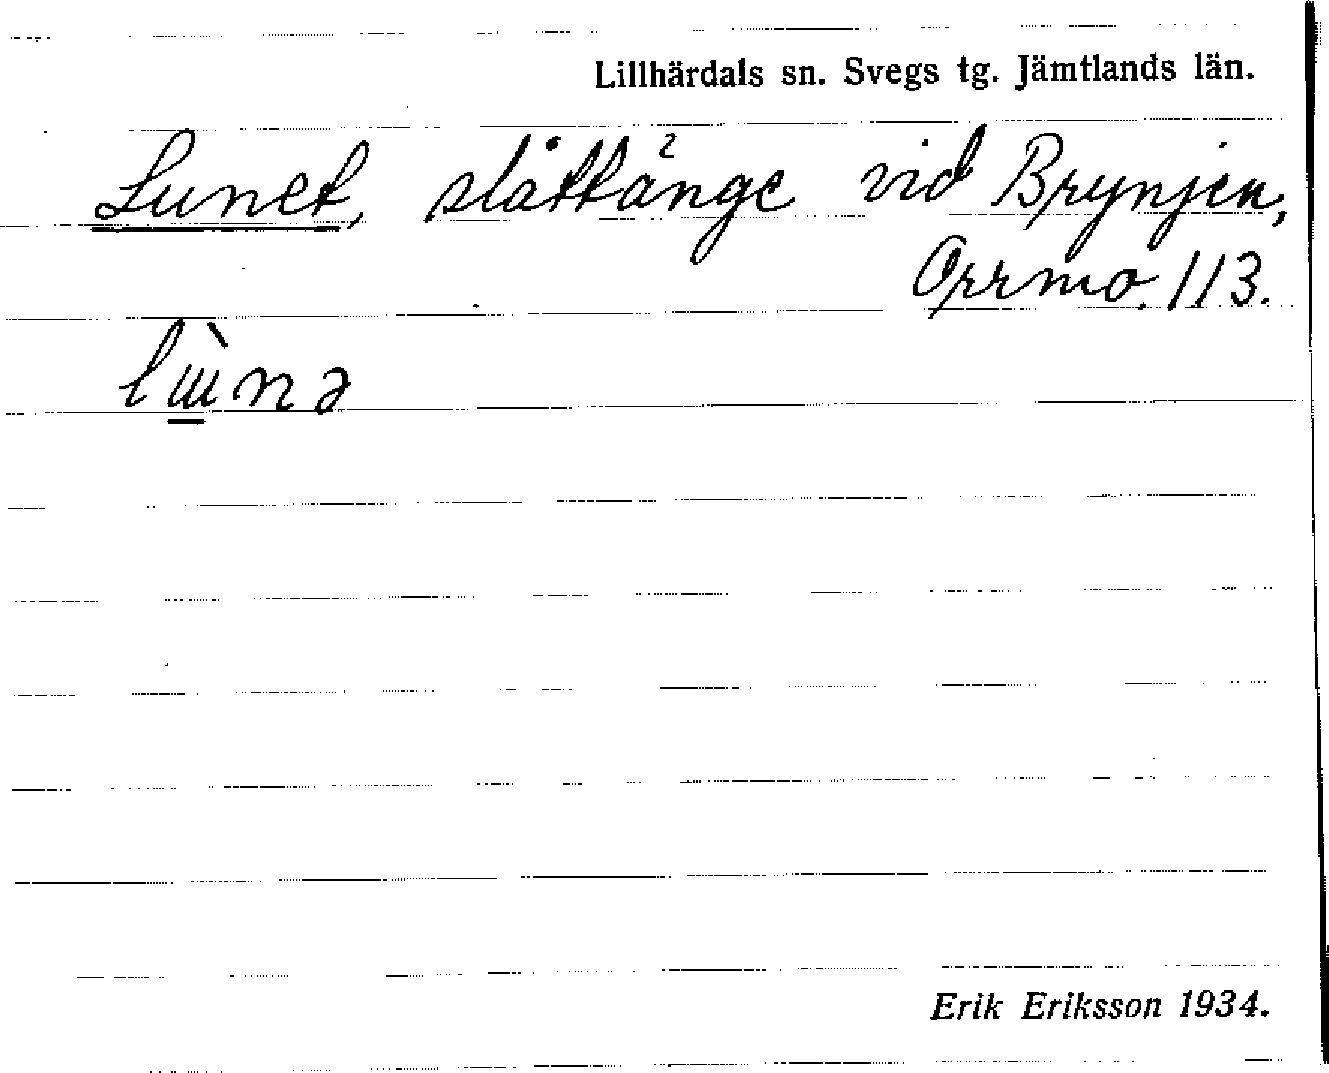 Lillhärdals sn. Svegs tg. Jämtlands län.
Lunet, slåttänge vid Brynjen,
Orrmo. 113.
lɯ̱̀nə
Erik Eriksson 1934.